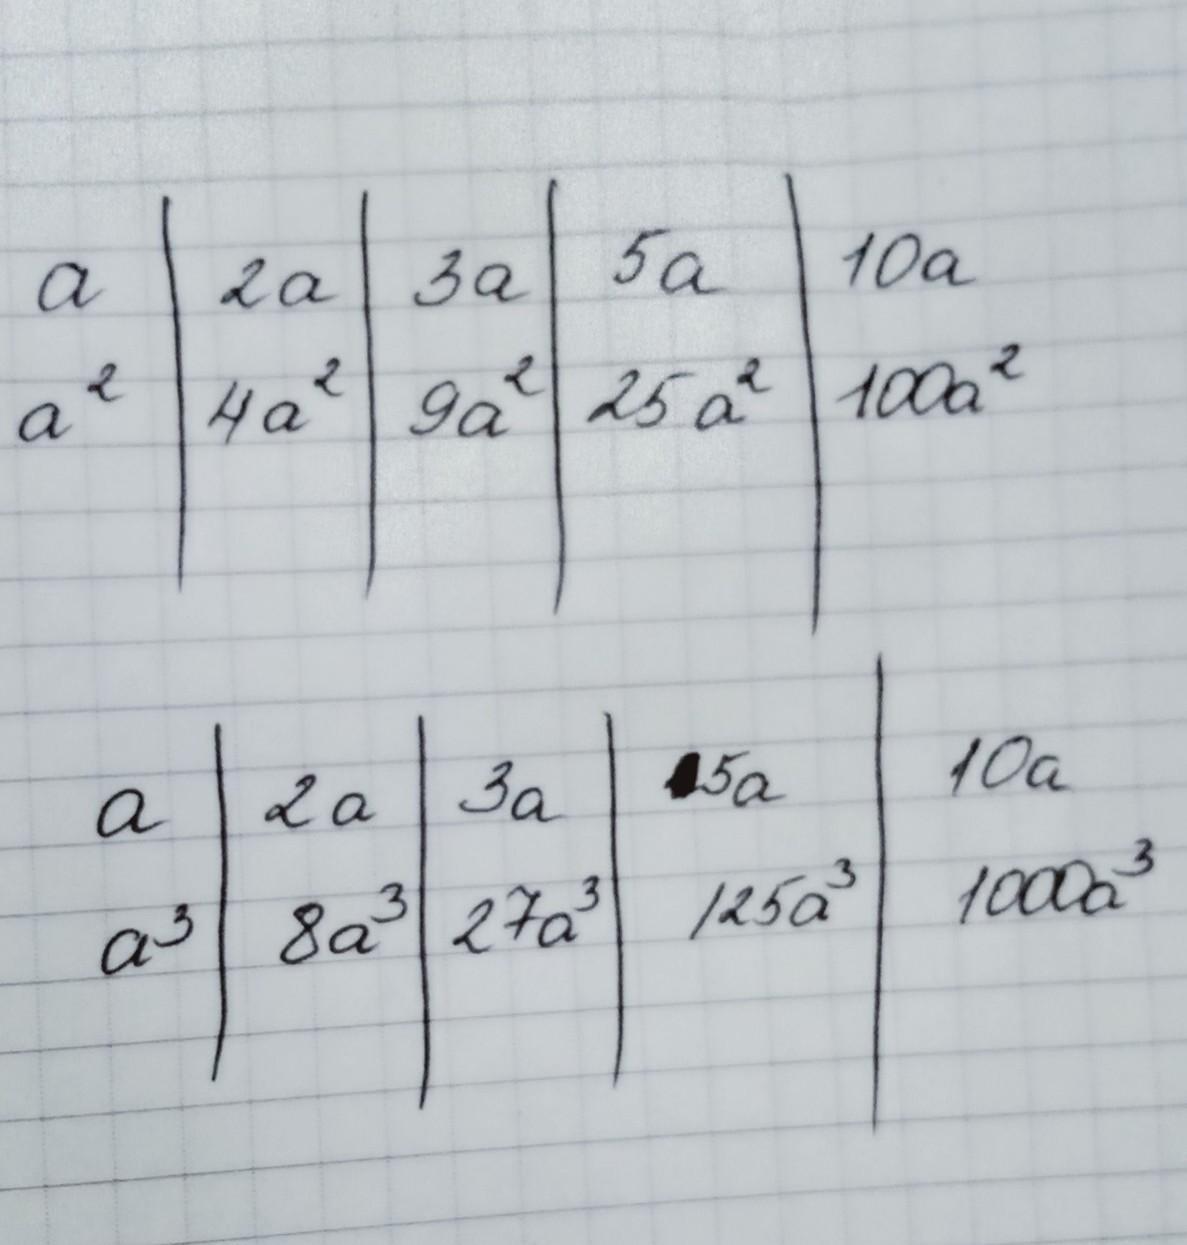 a | 2a | 3a | 5a | 10a
a² | 4a² | 9a² | 25a² | 100a²
a | 2a | 3a | 5a | 10a
a³ | 8a³ | 27a³ | 125a³ | 1000a³